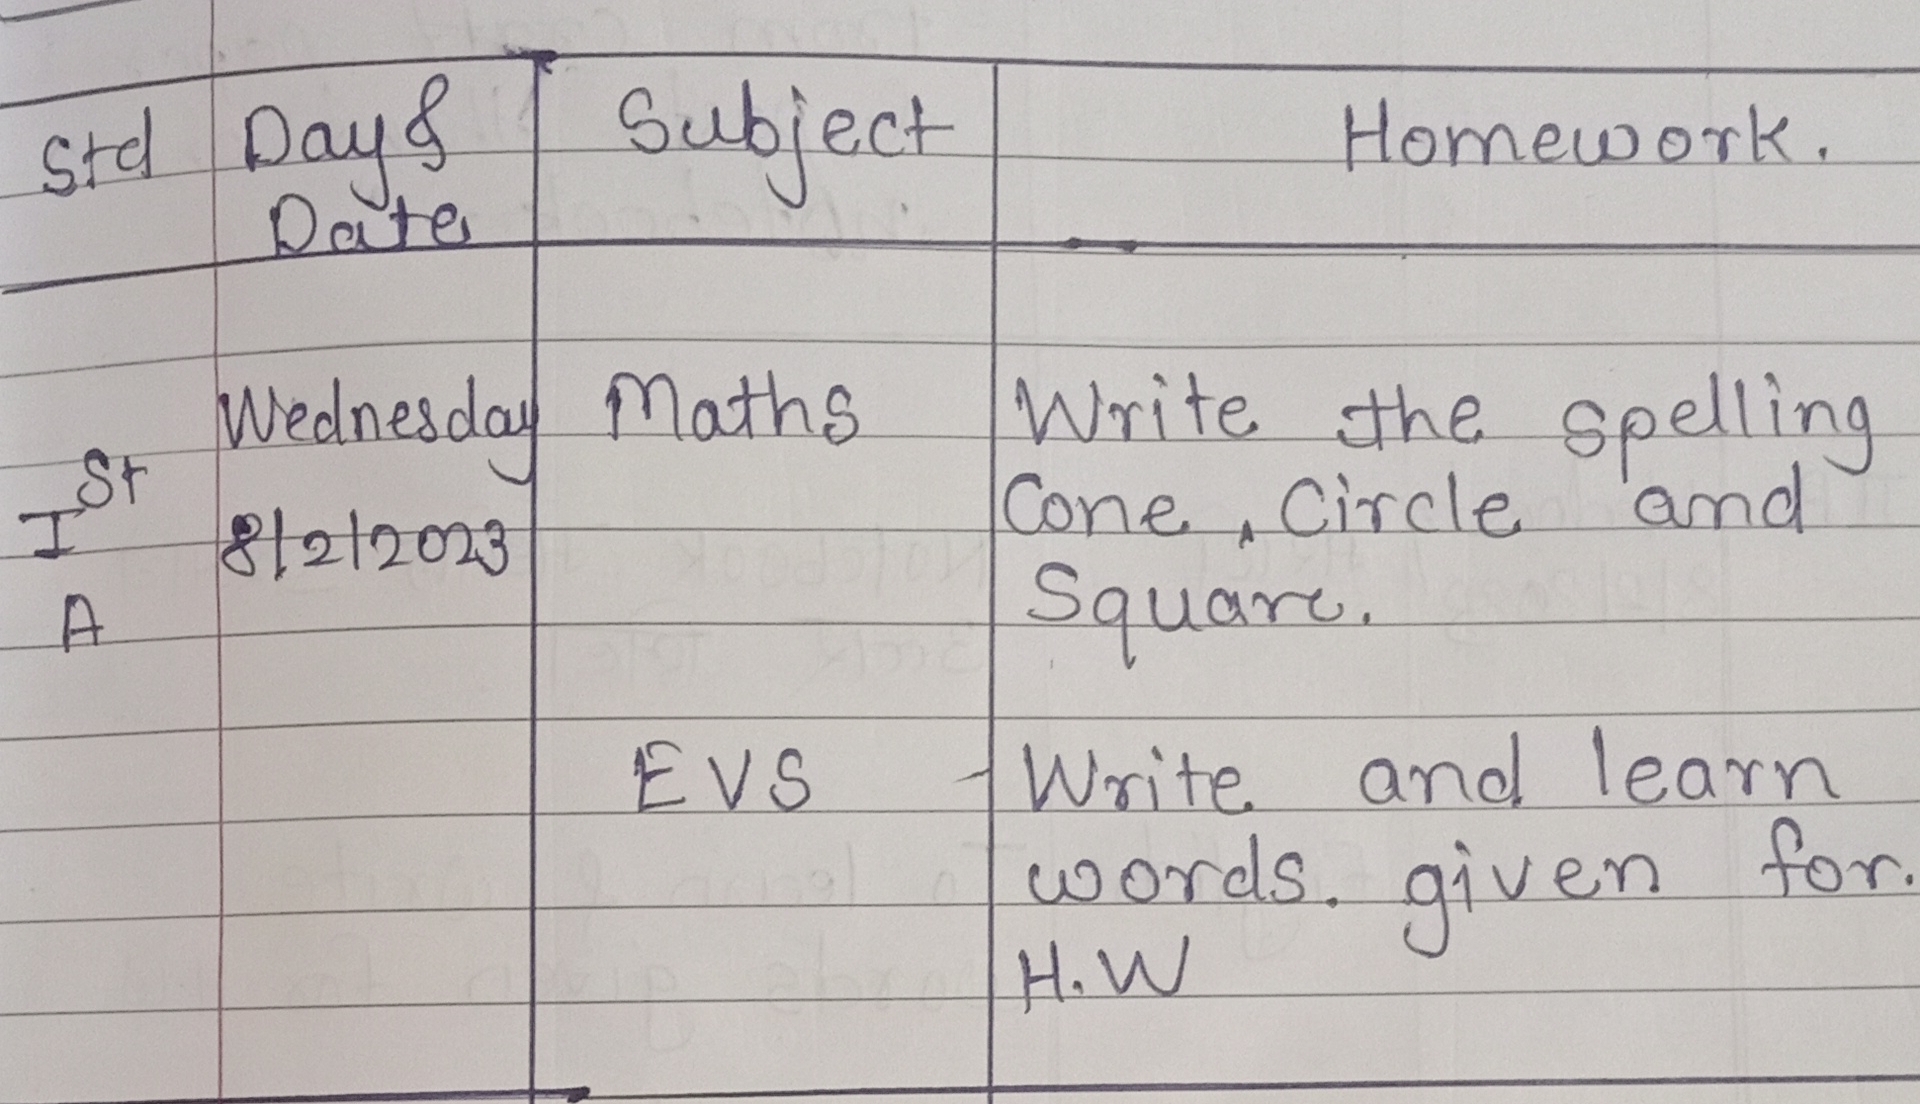 Std Day & Subject Homework.
Date
Wednesday Maths Write the spelling
Ist 8/2/2023 Cone, Circle and
A Square.
EVS - Write and learn
words. given for.
H.W